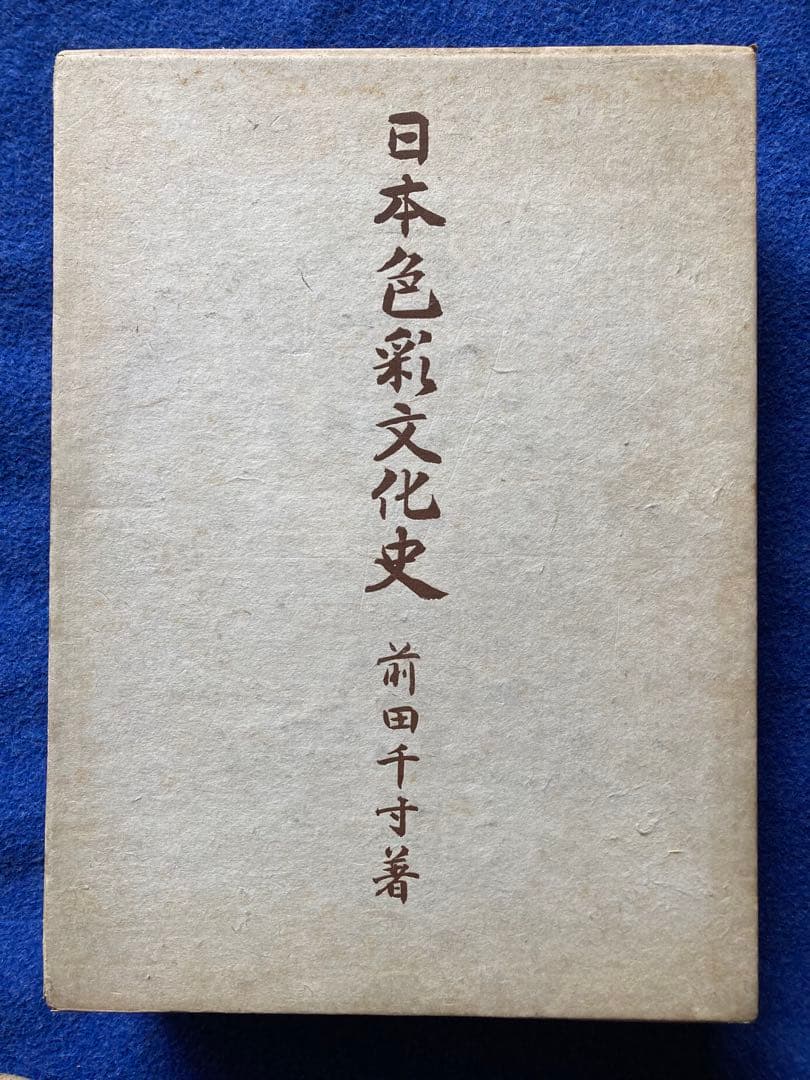 日本色彩文化史
前田千寸著